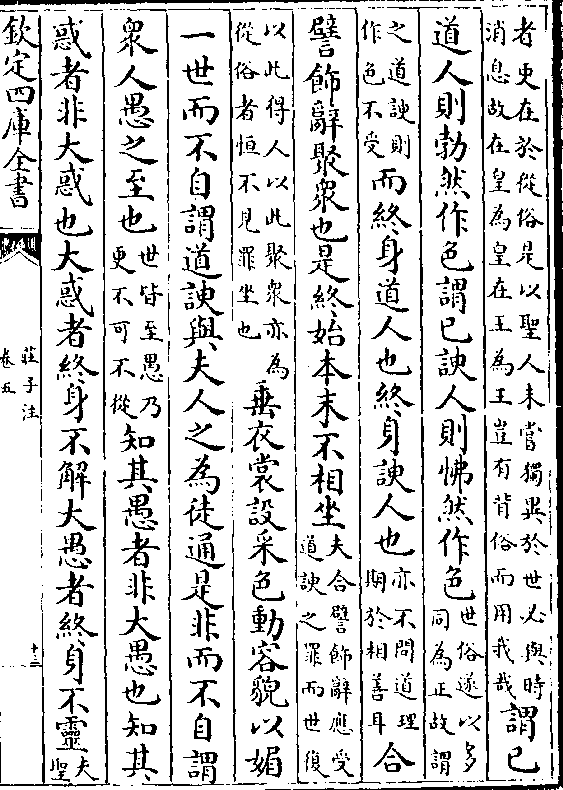 者更在於從俗是以聖人未嘗獨異於世必與時
消息故在皇為皇在王為王豈有背俗而用我哉
謂己
道人則勃然作色謂己諛人則怫然作色
世俗遂以多
同為正故謂
之道諛則
作色不受
而終身道人也終身諛人也
亦不問道理
期於相善耳
合
譬飾辭聚衆也是終始本末不相坐
夫合譬飾辭應受
道諛之罪而世復
以此得人以此聚衆亦為
從俗者恒不見罪坐也
垂衣裳設采色動容貌以媚
一世而不自謂道諛與夫人之為徒通是非而不自謂
衆人愚之至也
世皆至愚乃
更不可不從
知其愚者非大愚也知其
惑者非大惑也大惑者終身不解大愚者終身不靈
夫
聖
欽定四庫全書
莊子注
卷五
十三